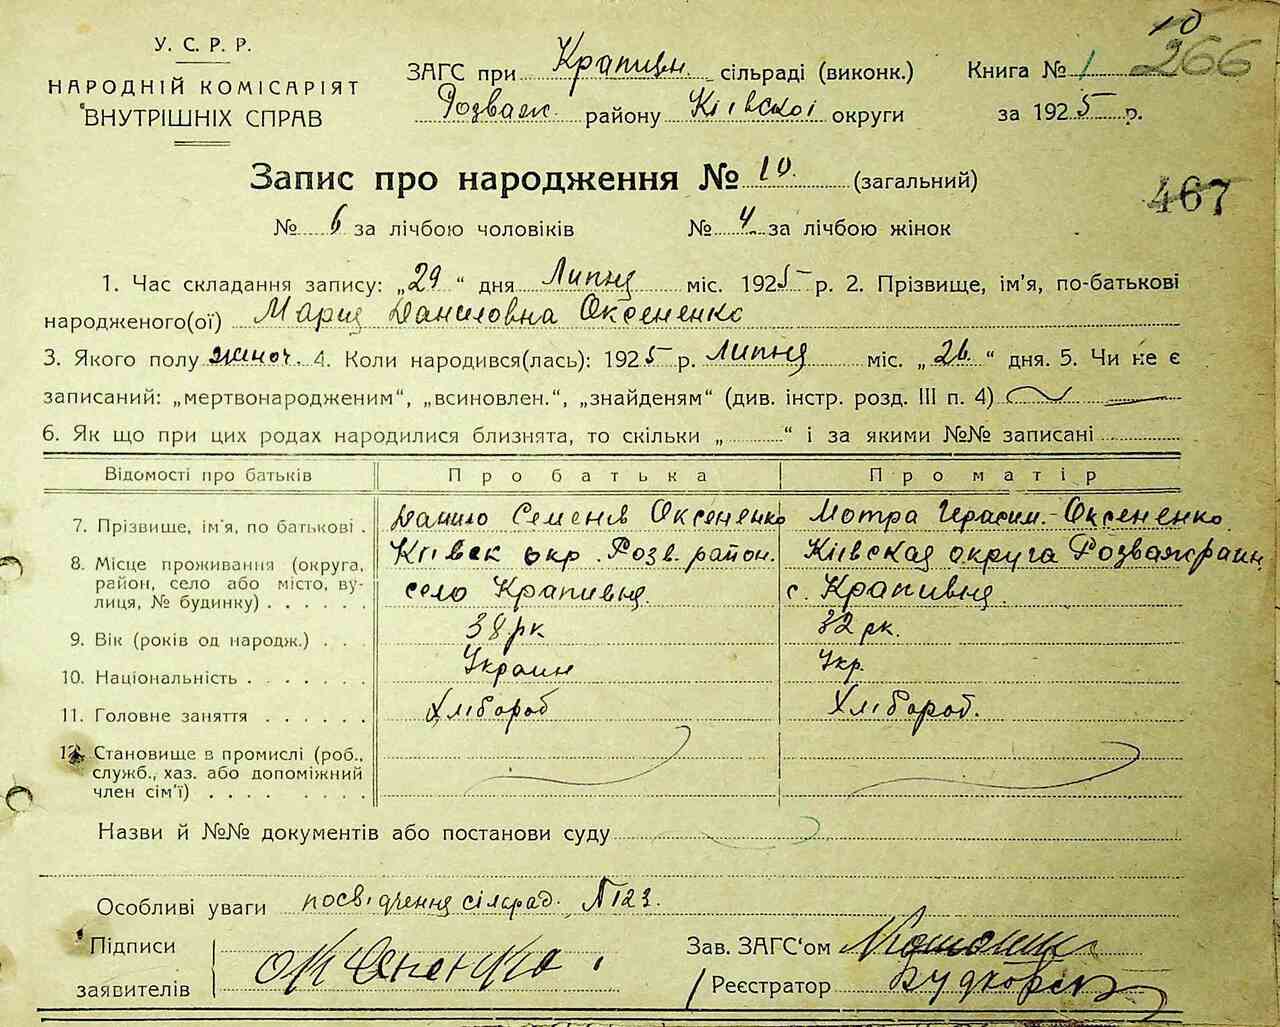 У. С. Р. Р.
НАРОДНІЙ КОМІСАРІЯТ
ВНУТРІШНІХ СПРАВ
ЗАГС при Крапивн. сільраді (виконк.)
Розваж. району Київскоі округи
Книга № 1
10
266
за 1925 р.
Запис про народження № 10. (загальний)
467
№ 6 за лічбою чоловіків № 4 за лічбою жінок
1. Час складання запису: „29“ дня Липня міс. 1925 р. 2. Прізвище, ім'я, по-батькові
народженого(ої) Мария Даниловна Оксененко
3. Якого полу жіноч. 4. Коли народився(лась): 1925 р. Липня міс. „26.“ дня. 5. Чи не є
записаний: „мертвонародженим“, „всиновлен.“, „знайденям“ (див. інстр. розд. III п. 4)
6. Як що при цих родах народилися близнята, то скільки „ “ і за якими №№ записані
Відомості про батьків Про батька Про матір
7. Прізвище, ім'я, по батькові . Данило Семенів Оксененко Мотра Герасим. Оксененко
8. Місце проживання (округа, Київск окр. Розв. район. Київская округа Розважраин
район, село або місто, ву-
лиця, № будинку) . . . . . . село Крапивня. с. Крапивня.
9. Вік (років од народж.) . . . 38 рк 32 рк.
10. Національність . . . . . . . Украин Укр.
11. Головне заняття . . . . . . Хлібороб Хлібороб.
12. Становище в промислі (роб.,
служб., хаз. або допоміжний
член сім'ї) . . . . . . . .
Назви й №№ документів або постанови суду
Особливі уваги посвідчення сілрад. №123.
Підписи
заявителів Оксененко
Зав. ЗАГС'ом
Реєстратор